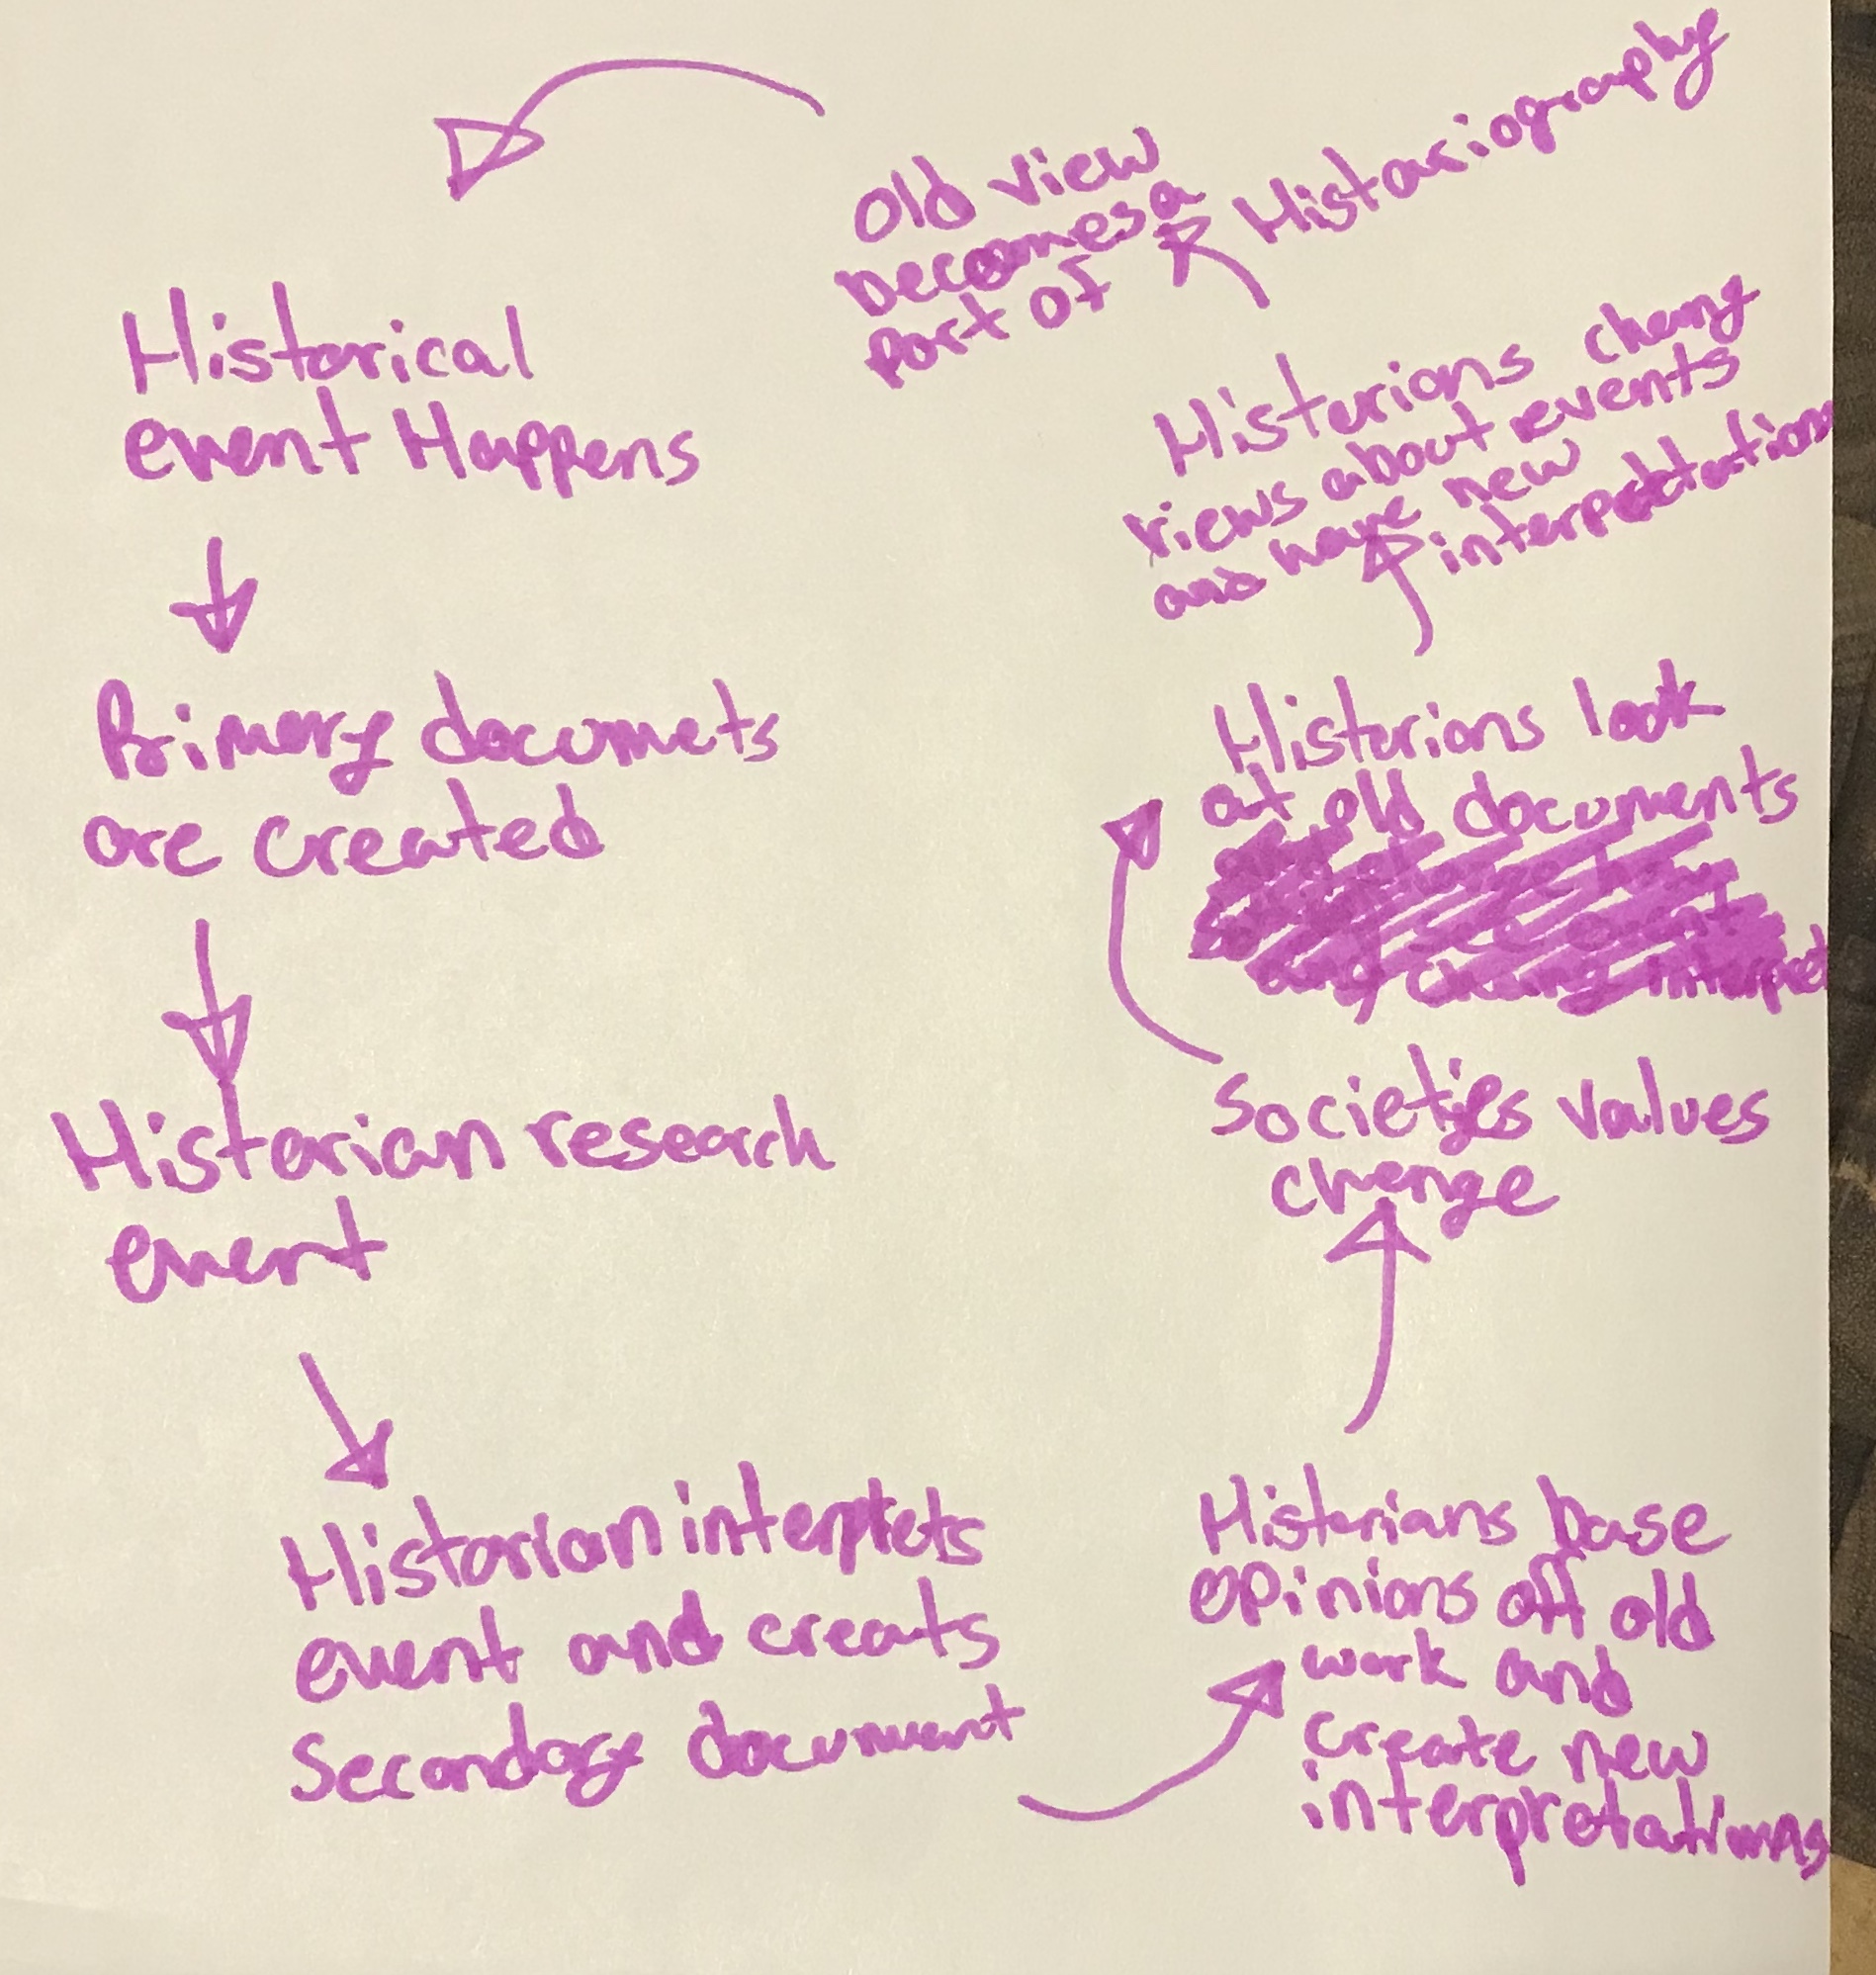 Historical
event Happens
Primary documets
are created
Historian research
event
Historian interplets
event and creats
Secondary document
Historians base
opinions off old
work and
create new
interpretations
Societies values
change
Historians look
at old documents
Historians chang
views about events
and have new
interpetations
Old view
becomes a
part of
Historiography